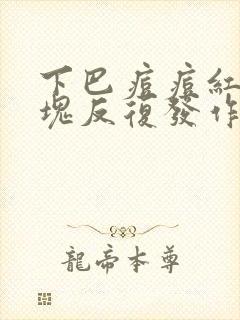 下巴痘痘紅
塊反復發作
龍帝本尊